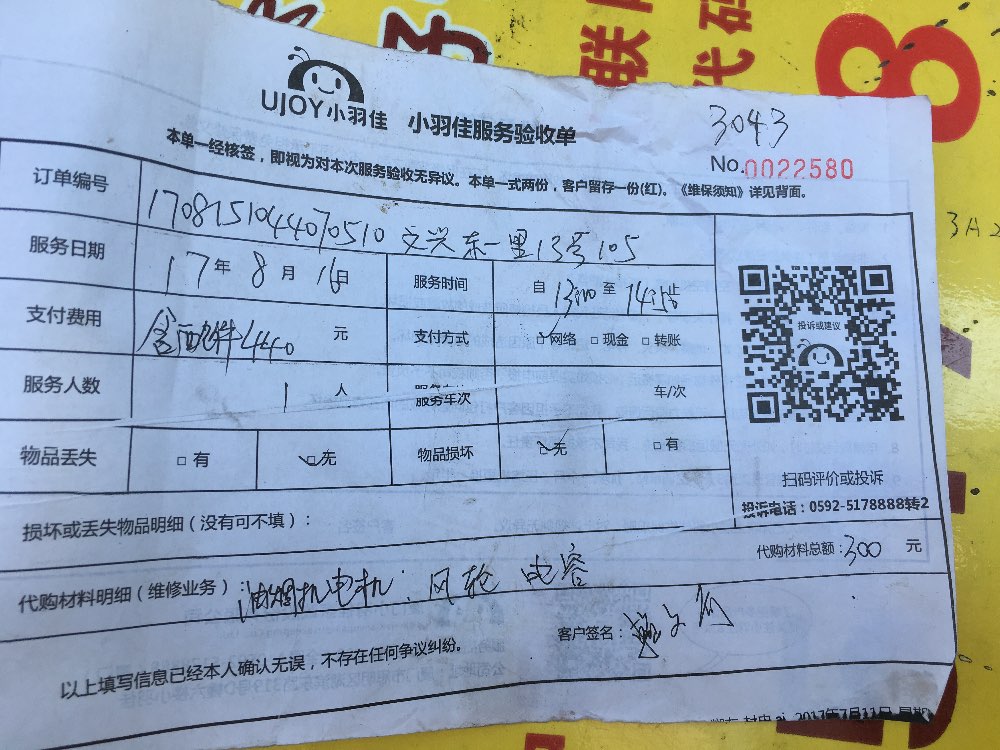 联
代码
8
UJOY小羽佳 小羽佳服务验收单
3043
No.0022580
本单一经核签，即视为对本次服务验收无异议。本单一式两份，客户留存一份(红)。《维保须知》详见背面。
订单编号 1708151044070510 文兴东一里13号105
3A2
服务日期 17年8月16日 服务时间 自1300至
支付费用 含配件440 元 支付方式 网络 □现金 □转账
服务人数 1 人 服务车次 车/次
物品丢失 □有 无 物品损坏 无 □有
投诉或建议
扫码评价或投诉
投诉电话：0592-5178888转2
损坏或丢失物品明细（没有可不填）：
代购材料总额：300 元
代购材料明细（维修业务）：油烟机电机；风轮 电容
客户签名：
以上填写信息已经本人确认无误，不存在任何争议纠纷。
2017年7月11日 星期